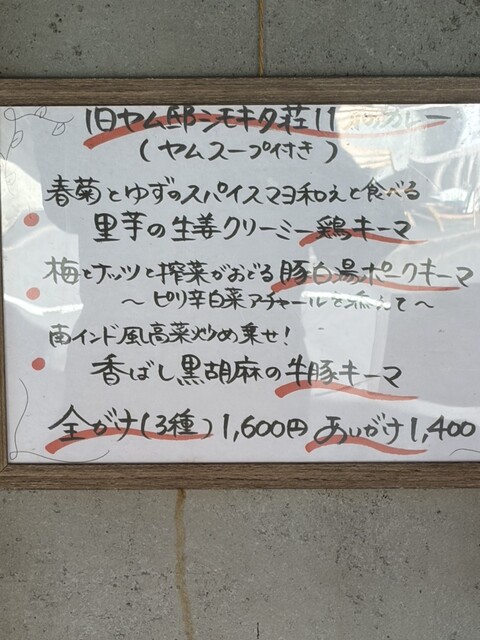 旧ヤム邸シモキタ荘11月のカレー
(ヤムスープ付き)
春菊とゆずのスパイスマヨ和えと食べる
里芋の生姜クリーミー鶏キーマ
梅とナッツと搾菜がおどる豚白湯ポークキーマ
~ピリ辛白菜アチャールを添えて~
南インド風高菜炒め乗せ!
香ばし黒胡麻の牛豚キーマ
全がけ(3種)1,600円 あいがけ1,400